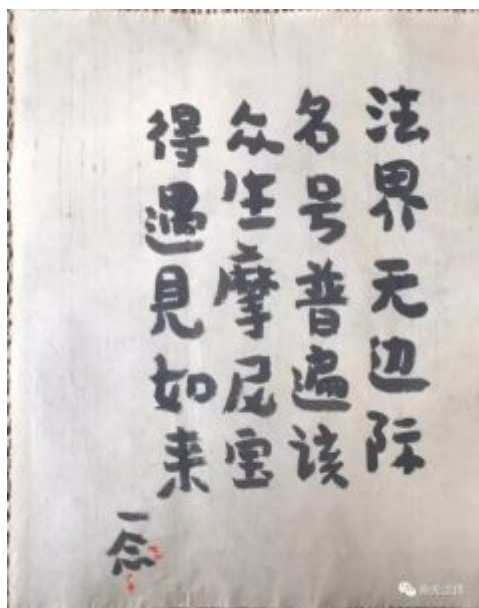 法界无边际
名号普遍该
众生摩尼宝
得遇見如来
一念